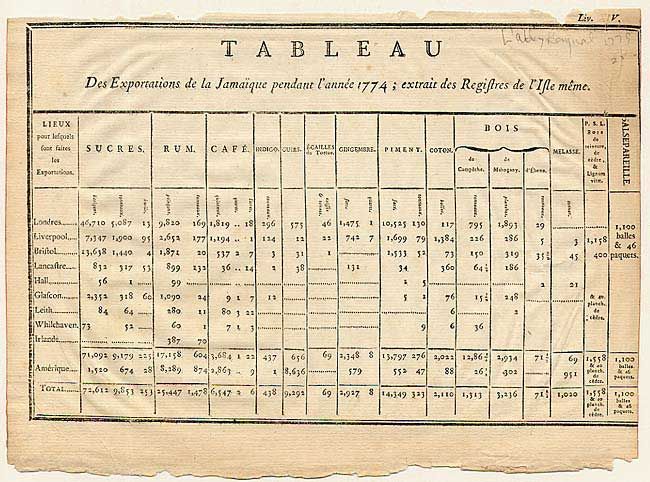 Liv. V.
TABLEAU
Des Exportations de la Jamaïque pendant l'année 1774 ; extrait des Regiſtres de l'Iſle même.
LIEUX pour leſquels ſont faites les Exportations. SUCRES. RUM. CAFÉ. INDIGO. CUIRS. ÉCAILLES de Tortue. GINGEMBRE. PIMENT. COTON. BOIS de Campêche. de Mahogany. d'Ébene. MELASSE. P. S. L. Bois de teinture, de cédre, & Lignum vitæ. SALSEPAREILLE
Londres 46,710 5,087 13 9,820 169 1,819 18 296 575 46 1,475 1 10,525 130 117 795 1,893 29
Liverpool 7,347 1,900 95 2,652 177 1,194 1 124 12 22 742 7 1,699 79 1,384 226 286 5 3 1,158 1,100 balles & 46 paquets.
Briſtol 13,638 1,440 4 1,871 20 537 2 7 3 31 1 1,533 52 73 150 319 35 45 400
Lancaſtre 832 317 53 899 132 36 14 2 38 131 34 360 64 186
Hall 56 1 99 2 5 2 21
Glaſcon 2,352 318 60 1,090 24 9 1 7 12 5 2 76 15 248 & 20 planch. de cédre.
Leith 84 64 280 11 80 3 22 6 2
Whilehaven 73 52 60 1 7 1 3 9 6 36
Irlande 387 70
71,092 9,179 225 17,158 604 3,684 1 22 437 656 69 2,348 8 13,797 276 2,022 1,286 2,934 71 69 1,558 & 20 planch. de cédre. 1,100 balles & 46 paquets.
Amérique 1,520 674 28 8,289 874 2,863 9 1 8,636 579 552 47 88 26 302 951
TOTAL 72,612 9,853 253 25,447 1,478 6,547 2 6 438 9,292 69 2,927 8 14,349 323 2,110 1,313 3,236 71 1,020 1,558 & 20 planch. de cédre. 1,100 balles & 46 paquets.